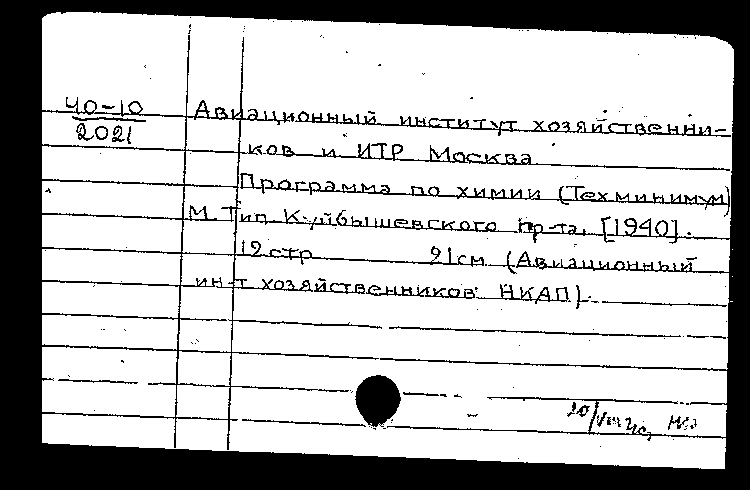 40-10
2021
Авиационный институт хозяйственни-
ков и ИТР Москва
Программа по химии (Техминимум)
М. Тип. Куйбышевского пр-та, [1940].
12 стр 21 см (Авиационный
ин-т хозяйственников НКАП).
20/VIII 40,